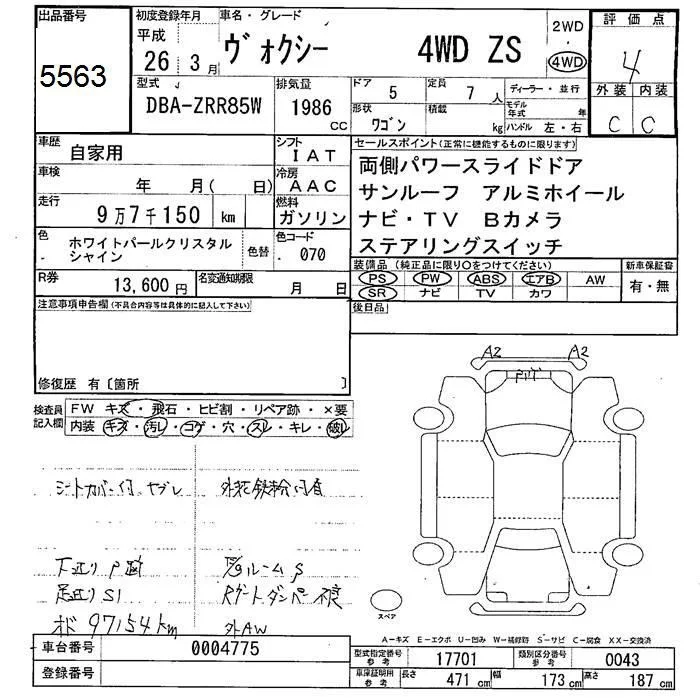 出品番号
5563
初度登録年月
平成
26 3月
車名・グレード
ヴォクシー 4WD ZS
2WD
・
4WD
評価点
4
外装 内装
C C
型式
DBA-ZRR85W
排気量
1986
CC
ドア 5
定員 7 人
ディーラー・並行
形状 ワゴン
積載 kg
モデル年式 年
ハンドル 左・右
車歴
自家用
シフト
IAT
車検
年 月( 日)
冷房
AAC
走行
9万7千150 km
燃料
ガソリン
色
ホワイトパールクリスタル
シャイン
色替
色コード
070
R券
13,600円
名変通知期限
月 日
セールスポイント(正常に機能するものに限ります)
両側パワースライドドア
サンルーフ アルミホイール
ナビ・TV Bカメラ
ステアリングスイッチ
装備品 (純正品に限り○をつけてください)
新車保証書
PS PW ABS エアB AW
SR ナビ TV カワ
有・無
後日品
注意事項申告欄(不具合内容等は具体的に記入して下さい)
修復歴 有〔箇所 〕
検査員
記入欄
FW キズ・飛石・ヒビ割・リペア跡・×要
内装 キズ・汚レ・コゲ・穴・スレ・キレ・破レ
シートカバー付 ヤブレ
外装鉄粉付着
下廻り
足廻り S1
ルーム
Rゲートダンパー不良
97154km
外AW
A2 A2
スペア
A-キズ E-エクボ U-凹み W-補修跡 S-サビ C-腐食 XX-交換済
車台番号
0004775
登録番号
型式指定番号
参考
17701
類別区分番号
参考
0043
車庫証明用
参考
長さ 471 cm
幅 173 cm
高さ 187 cm